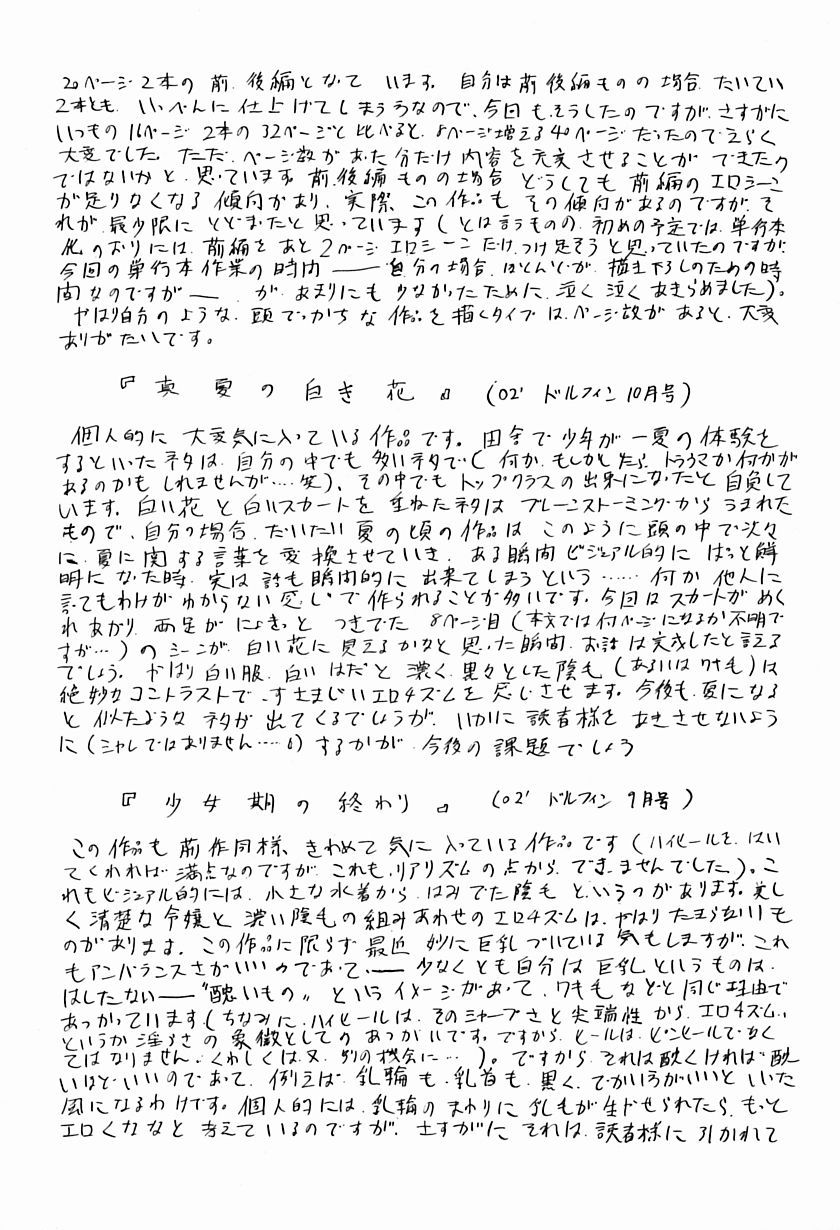 20ページ2本の前、後編となって います。自分は前後編ものの場合、たいてい
2本とも、いっぺんに仕上げてしまうなので、今回も、そうしたのですが、さすがに
いつもの16ページ 2本の32ページと比べると、8ページ増える40ページだったのでえらく
大変でした。ただ、ページ数があった分だけ内容を充実させることができたの
ではないかと、思っています。前、後編ものの場合 どうしても 前編のエロシーン
が足りなくなる傾向があり、実際、この作品も その傾向があるのですが、そ
れが、最少限に とどまったと思っています(とは言うものの、初めの予定では、単行本
化のおりには、前編をあと2ページ エロシーンだけ、つけ足そうと思っていたのですが、
今回の単行本作業の時間――自分の場合、ほとんどが、描き下ろしのための時
間なのですが―― が、あまりにも 少なかったために、泣く泣くあきらめました)。
やはり自分のような、頭でっかちな 作品を描くタイプは、ページ数が あると、大変
ありがたいです。
『真夏の白き花』(02' ドルフィン10月号)
個人的に 大変気に入っている作品です。田舎で少年が一夏の体験を
するといったネタは、自分の中でも 多いネタで(何か、もしかしたら、トラウマか何かが
あるのかもしれませんが‥‥笑)、その中でも トップクラスの出来になったと自負して
います。白い花と白いスカートを 重ねたネタは ブレーンストーミングから うまれた
もので、自分の場合、だいたい 夏の頃の作品は このように頭の中で次々
に、夏に関する言葉を変換させていき、ある瞬間 ビジュアル的に はっと解
明になった時、実は話も瞬間的に 出来てしまうという‥‥‥ 何か 他人に
言ってもわけがわからない感じで作られることが多いです。今回はスカートがめく
れあがり、両足が にょきっと つきでた 8ページ目(本文では何ページになるか不明で
すが…)のシーンが、白い花に見えるかなと思った瞬間、お話は完成したと言える
でしょう。やはり白い服、白いはだと 濃く、黒々とした陰毛(あるいはワキ毛)は
絶妙なコントラストで、すさまじいエロチズムを感じさせます。今後も、夏になる
と 似たようなネタが 出てくるでしょうが、いかに 読者様を あきさせないよう
に(シャレではありません‥‥)するかが、今後の課題でしょう
『少女期の終わり』(02' ドルフィン 9月号)
この作品も 前作同様、きわめて気に入っている作品です(ハイヒールを、はい
てくれれば満点なのですが、これも、リアリズムの点から、できませんでした)。こ
れもビジュアル的には、小さな水着から、はみでた陰毛 というのがあります。美し
く清楚な令嬢と 濃い陰毛の組みあわせのエロチズムは、やはり たまらないも
のがあります。この作品に限らず 最近 妙に巨乳づいている気もしますが、これ
もアンバランスさがいいのであって、―― 少なくとも自分は 巨乳というものは、
はしたない――“醜いもの”というイメージがあって、ワキ毛などと同じ理由で
あつかっています(ちなみに、ハイヒールは、そのシャープさと尖端性から、エロチズム、
というか淫らさの 象徴としての あつかいです。ですから、ヒールは、ピンヒールでなく
てはなりません。くわしくは、又、別の機会に…)。ですから、それは醜くければ醜
いほどいいのであって、例えば、乳輪も、乳首も、黒く、でかいほうがいいと いった
風になるわけです。個人的には、乳輪の まわりに 乳毛が生やせられたら、もっと
エロくなるなと 考えているのですが、さすがに それは、読者様に 引かれて